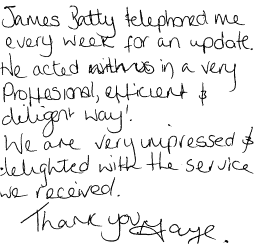 James Batty telephoned me
every week for an update.
He acted with us in a very
Proffesional, efficient &
diligent way!
We are very impressed &
delighted with the service
we received.
Thank you